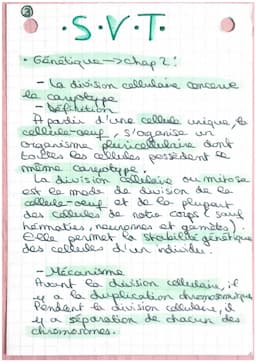 3
• S.V.T. •
• Génétique → chap 2 :
- La division cellulaire conserve
le caryotype
- Définition
A partir d'une cellule unique, la
cellule-oeuf, s'organise un
organisme pluricellulaire dont
toutes les cellules possèdent le
même caryotype.
La division cellulaire ou mitose
est le mode de division de la
cellule-oeuf et de la plupart
des cellules de notre corps (sauf
hématies, neurones et gamètes).
Elle permet la stabilité génétique
des cellules d'un individu.
- Mécanisme
Avant la division cellulaire, il
y a la duplication chromosomique
Pendant la division cellulaire, il
y a séparation de chacun des
chromosomes.